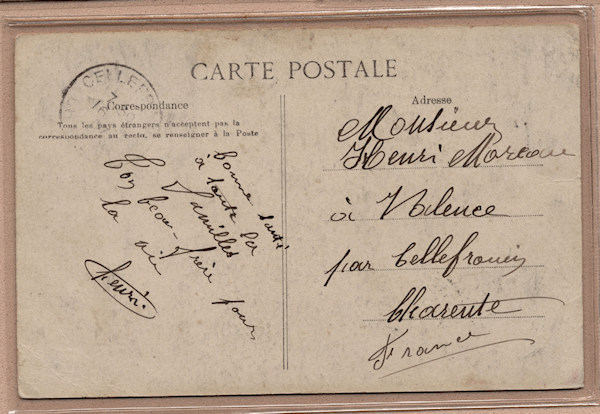 CELLEF
CARTE POSTALE
Correspondance
Tous les pays étrangers n'acceptent pas la
correspondance au recto, se renseigner à la Poste
bonne santé
à toute la
famille
Ton beau-frère pour
la vie
Henri.
Adresse
Monsieur
Henri Moreau
à Valence
par Cellefrouin
Charente
France